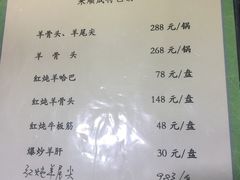 羊骨头、羊尾尖 288 元/锅
羊 骨 头 268 元/锅
红炖羊哈巴 78 元/盘
红炖羊骨头 148 元/盘
红炖牛板筋 48 元/盘
爆炒羊肝 30 元/盘
红炖羊尾尖